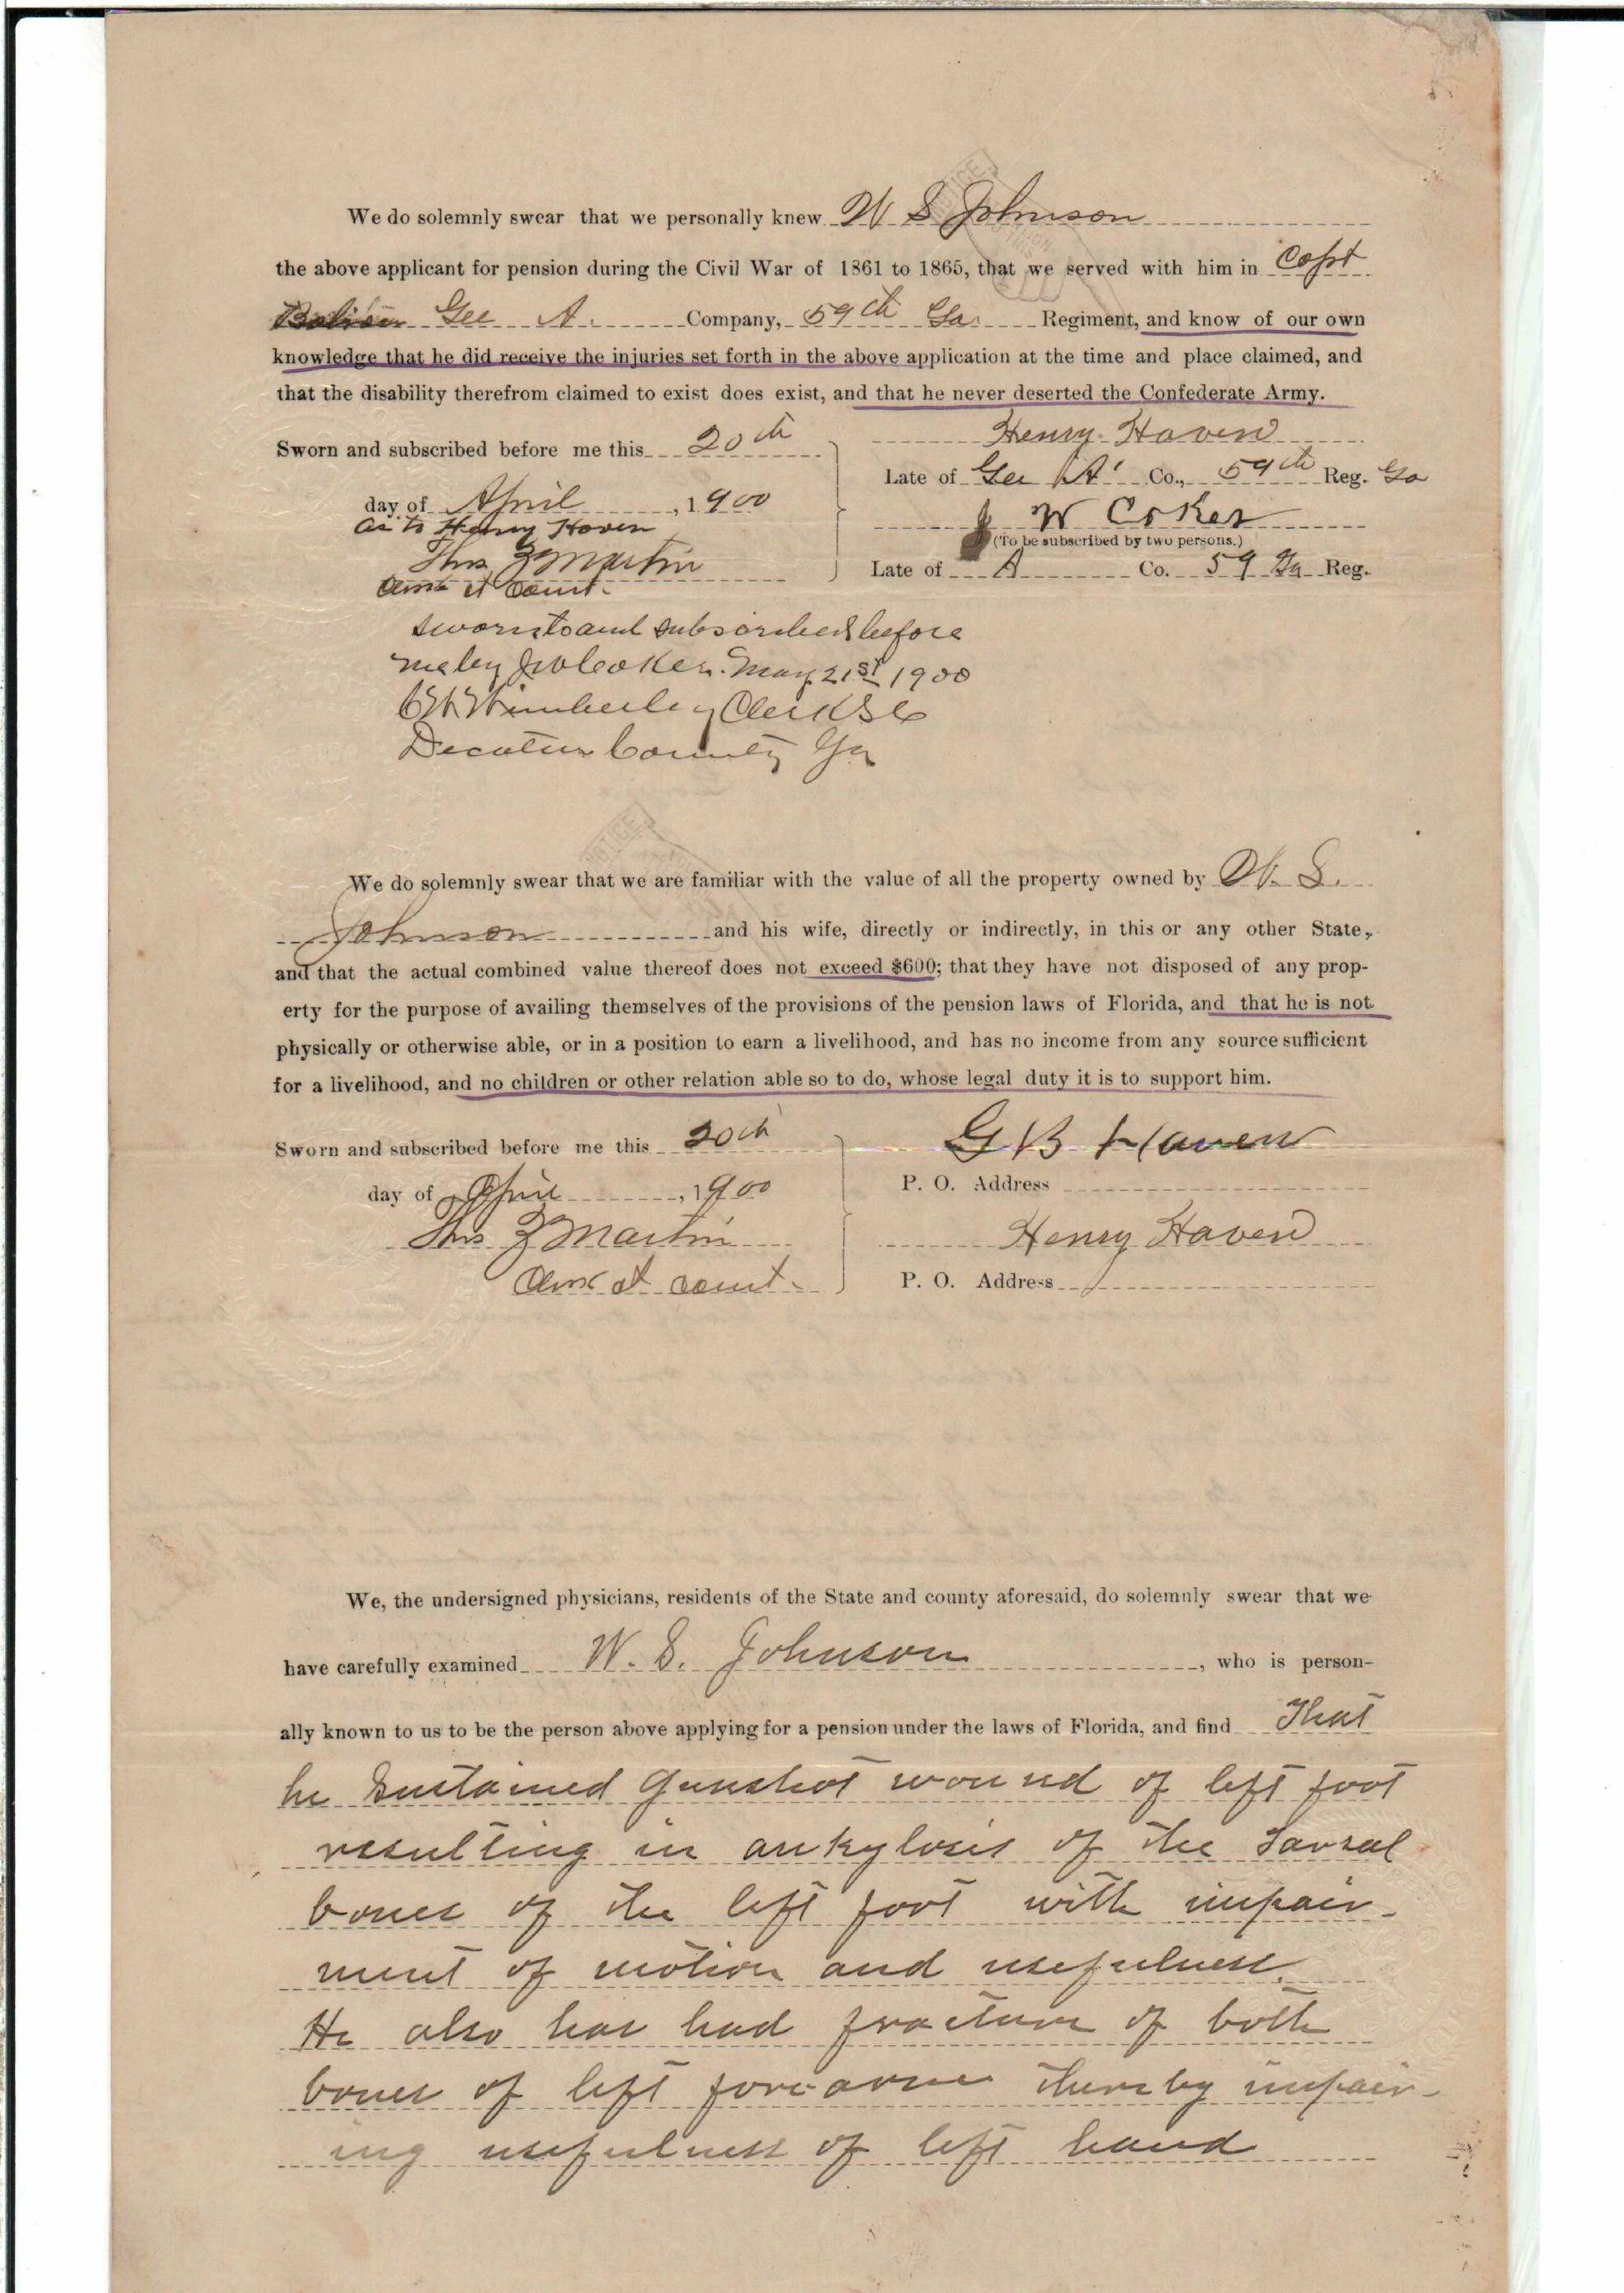 We do solemnly swear that we personally knew W S Johnson
the above applicant for pension during the Civil War of 1861 to 1865, that we served with him in Capt
Gee A. Company, 59th Ga. Regiment, and know of our own
knowledge that he did receive the injuries set forth in the above application at the time and place claimed, and
that the disability therefrom claimed to exist does exist, and that he never deserted the Confederate Army.
Sworn and subscribed before me this 20th
day of April, 1900
as to Henry Haven
Thos Z Martin
Clerk ct Court.
Henry Haven
Late of Gee 'A' Co., 59th Reg. Ga
J W Coker
(To be subscribed by two persons.)
Late of A Co. 59 Ga Reg.
sworn to and subscribed before
me by J W Coker. May 21st 1900
Wimberley Clerk S C
Decatur County Ga
We do solemnly swear that we are familiar with the value of all the property owned by W. S.
Johnson and his wife, directly or indirectly, in this or any other State,
and that the actual combined value thereof does not exceed $600; that they have not disposed of any prop-
erty for the purpose of availing themselves of the provisions of the pension laws of Florida, and that he is not
physically or otherwise able, or in a position to earn a livelihood, and has no income from any source sufficient
for a livelihood, and no children or other relation able so to do, whose legal duty it is to support him.
Sworn and subscribed before me this 20th
day of April, 1900
Thos Z Martin
Clerk ct court.
G B Haven
P. O. Address
Henry Haven
P. O. Address
We, the undersigned physicians, residents of the State and county aforesaid, do solemnly swear that we
have carefully examined W. S. Johnson, who is person-
ally known to us to be the person above applying for a pension under the laws of Florida, and find That
he sustained gunshot wound of left foot
resulting in ankylosis of the Tarsal
bones of the left foot with impair-
ment of motion and usefulness.
He also has had fracture of both
bones of left fore-arm thereby impair-
ing usefulness of left hand